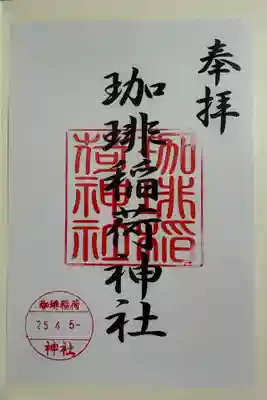 奉拝
珈琲稲荷神社
珈琲稲
荷神社
珈琲稲荷
25.4.5-
神社